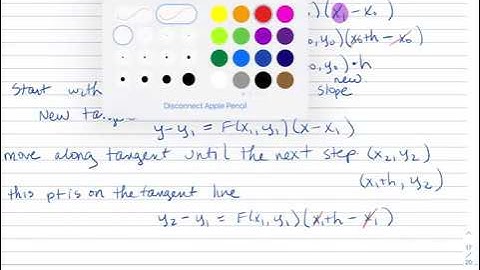 )(x₁ - x₀)
, y₀)(x₀+h - x₀)
, y₀)·h
new
Start with slope
Disconnect Apple Pencil
New tange
y-y₁ = F(x₁,y₁)(x-x₁)
move along tangent until the next step (x₂,y₂)
(x₁+h, y₂)
this pt is on the tangent line
y₂-y₁ = F(x₁,y₁)(x₁+h-x₁)
17
20